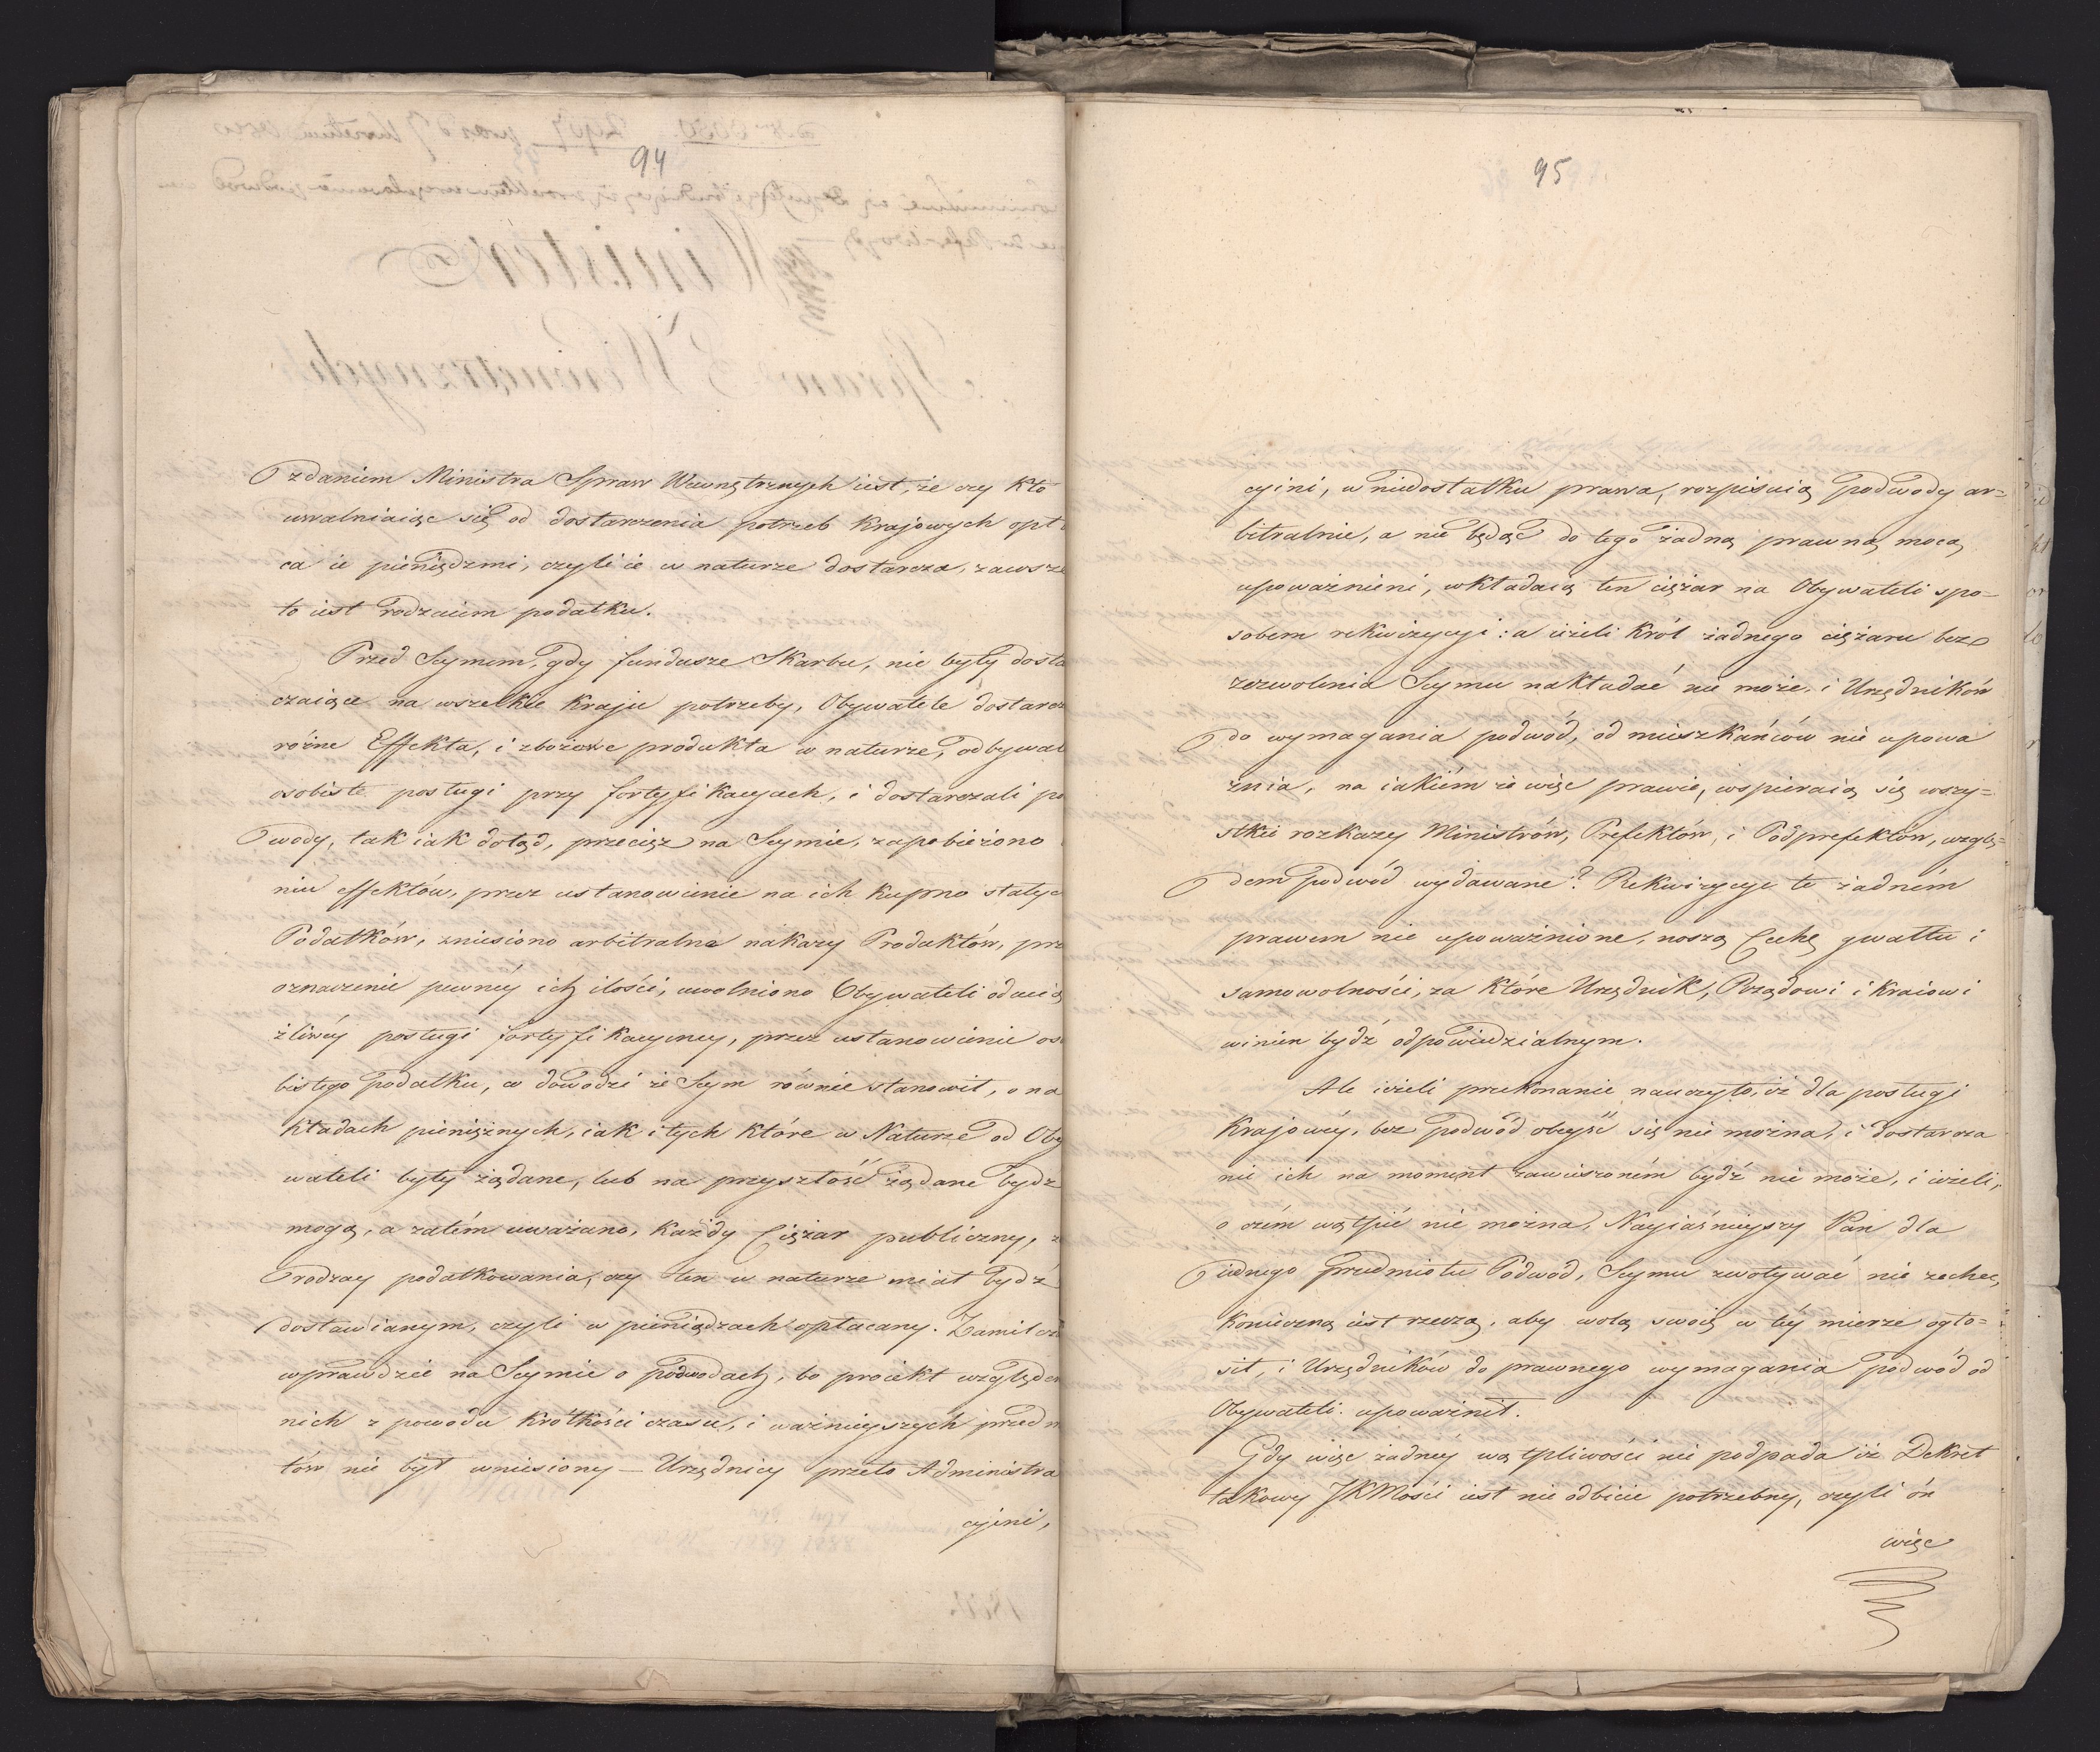 94
zdaniem Ministra Spraw Wewnętrznych iest, że czy kto
uwalniaiąc się od dostarczenia potrzeb krajowych opł
ca ie pieniędzmi, czyli ie w naturze dostarcza, zawsze
to iest rodzaiem podatku.
Przed Seymem, gdy fundusze Skarbu, nie były dosta
czaiące na wszelkie kraju potrzeby, Obywatele dostarcz
różne Effekta, i zbożowe produkta w naturze, odbywal
osobiste posługi przy fortyfikacyach, i dostarczali po
wody, tak iak dotąd, przeciąż na Seymie, zapobieżono
niu effektów, przez ustanowienie na ich kupno stałyc
Podatków, zniesiono arbitralne nakazy Produktów, prz
oznaczenie pewnéy ich ilości, uwolniono Obywateli od ucią
żliwéy posługi fortyfikacyiney, przez ustanowienie oso
bistego podatku, co dowodzi że Seym równie stanowił, o na
kładach pieniężnych, iak i tych które w Naturze od Oby
wateli były żądane, lub na przyszłość żądane bydz
mogą, a zatém uważano, każdy Ciężar publiczny, z
rodzay podatkowania, czy ten w naturze miał bydź
dostawianym, czyli w pieniądzach opłacany. Zamilcz
wprawdzie na Seymie o podwodach, bo proiekt względem
nich z powodu krótkości czasu, i ważnieyszych przedm
tów nie był wniesiony — Urzędnicy przeto Administra
cyini,
95
cyini, w niedostatku prawa, rozpisuią podwody ar=
bitralnie, a nie będąc do tego żadną prawną mocą
upoważnieni, wkładaią ten ciężar na Obywateli spo=
sobem rekwizycyi: a ieżeli Król żadnego ciężaru bez
zezwolenia Seymu nakładać nie może, i Urzędników
do wymagania podwód, od mieszkańców nie upowa
żnia, na iakiém że więc prawie, wspieraią się wszy=
stkie rozkazy Ministrów, Prefektów, i Podprefektów, wzglę=
dem podwód wydawane? Rekwizycye te żadném
prawem nie upoważnione, noszą Cechę gwałtu i
samowolności, za które Urzędnik, Rządowi i Kraiowi
winien bydź odpowiedzialnym.
Ale ieżeli przekonanie nauczyło, iż dla posługi
Krajowéy, bez podwód obeyść się nie można, i dostarcza
nie ich na moment zawieszoném bydź nie może, i ieżeli,
o czém wątpić nie można, Nayiaśnieyszy Pan dla
iednego przedmiotu Podwód, Seymu zwoływać nie zechce,
konieczną iest rzeczą, aby wolą swoię w téy mierze ogło=
sił, i Urzędników do prawnego wymagania podwód od
Obywateli upoważnił.
Gdy więc żadnéy wątpliwości nie podpada iż Dekret
takowy JKMości iest nie odbicie potrzebny, czyli ón
więc